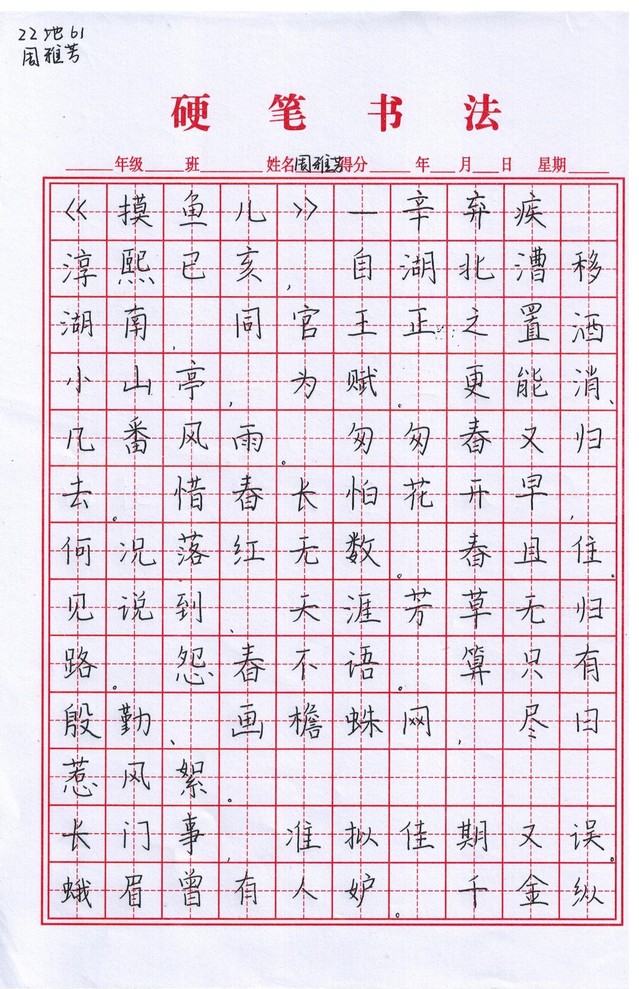 22地61
周雅芳
硬笔书法
____年级____班______姓名周雅芳得分____年___月___日 星期____
《摸鱼儿》一辛弃疾
淳熙已亥,自湖北漕移
湖南,同官王正之置酒
小山亭,为赋。更能消、
几番风雨。匆匆春又归
去。惜春长怕花开早,
何况落红无数。春且住。
见说到、天涯芳草无归
路。怨春不语。算只有
殷勤、画檐蛛网,尽日
惹风絮。
长门事,准拟佳期又误。
蛾眉曾有人妒。千金纵